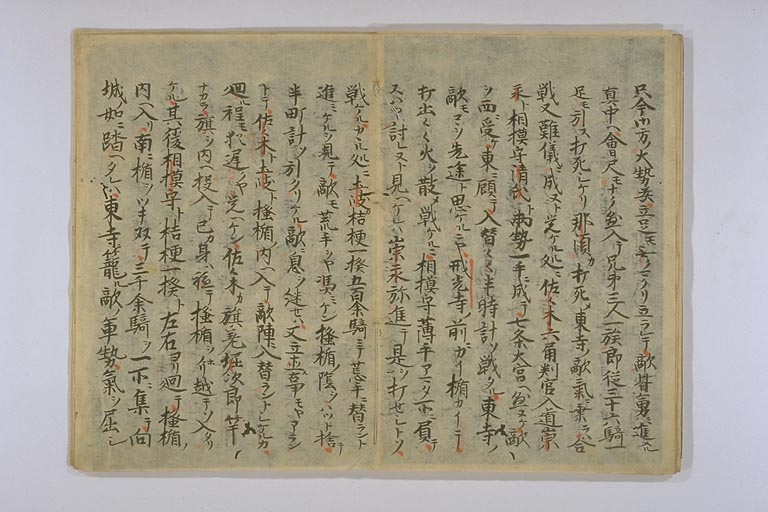 只今小方ノ大勢立足モ ラレテ敵皆勇ミ進メル
真中ヘ會尺モナク懸入テ兄弟三人一族郎従三十六騎一
足モ引ス打死シケリ那須カ打死ニ東寺ノ敵氣ニ乗ラハ合
戦又難儀ニ成ヌト覚ケル処ニ佐々木六角判官入道崇
永ト相模守清氏ト両勢一手ニ成テ七条大宮ヘ懸ヌケ敵
ヲ西ニ受ケ東ニ顧テ入替々々半時計ソ戦タル東寺ノ
敵モコヽヲ先途ト思ケルニヤ戒光寺ノ前ニカイ楯カイテ
打出々々火ヲ散シ戦ケルニ相模守薄手アマタ所負テ
スハヤ討レヌト見ヘケレハ崇永弥進テ是ヲ打セシトソ
戦ケルカヽル処ニ土岐桔梗一揆五百余騎ニテ荒手ニ替ラント
進ミケルヲ見テ敵モ荒手ヲヤ憑ケン掻楯ノ陰ヲハツト捨テ
半町計ソ引タリケル敵ニ息ヲ継セハ又立直ス事モヤアラン
トテ佐々木ト土岐ト掻楯ノ内ヘ入テ敵陣ニ入替ラントシケルカ
廻ル程モ猶遅クヤ覚ヘケン佐々木カ旗差堀次郎竿
ナカラ旗ヲ内ヘ投入テ己カ身ハ軈テ掻楯ヲ上リ越テソ入タリ
ケル其後相模守ト桔梗一揆ト左右ヨリ廻テ掻楯ノ
内ヘ入リ南ニ楯ヲツキ双テ三千余騎ヲ一所ニ集テ向
城ノ如ニ踏ヘタレハ東寺ニ籠ル敵ノ軍勢氣ヲ屈シ